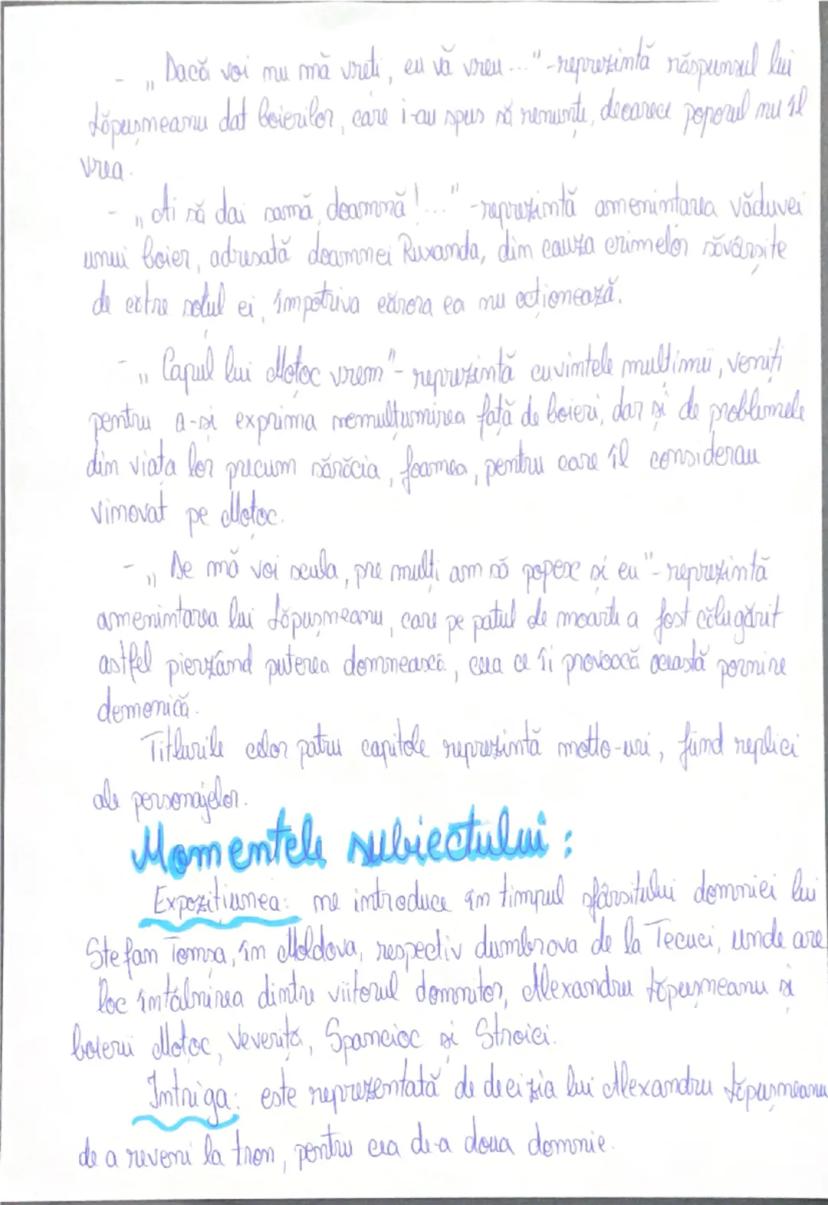 - „Dacă voi nu mă vreti, eu vă vreu..." - reprezintă răspunsul lui
Lăpușneanu dat boierilor, care i-au spus să renunțe, deoarece poporul nu îl
vrea.
- „Ai să dai samă, doamnă!..." - reprezintă amenintarea văduvei
unui boier, adresată doamnei Ruxanda, din cauza crimelor săvârșite
de către soțul ei, împotriva cărora ea nu acționează.
- „Capul lui Moțoc vrem" - reprezintă cuvintele multimii, veniți
pentru a-și exprima nemulțumirea față de boieri, dar și de problemele
din viața lor precum sărăcia, foamea, pentru care îl considerau
vinovat pe Moțoc.
- „De mă voi scula, pre mulți am să popesc și eu" - reprezintă
amenintarea lui Lăpușneanu, care pe patul de moarte a fost călugărit
astfel pierzând puterea domnească, ceea ce îi provoacă această pornire
demonică.
Titlurile celor patru capitole reprezintă motto-uri, fiind replici
ale personajelor.
Momentele subiectului:
Expozitiunea: ne introduce în timpul sfârsitului domniei lui
Stefan Tomsa, în Moldova, respectiv dumbrava de la Tecuci, unde are
loc întâlnirea dintre viitorul domnitor, Alexandru Lăpușneanu și
boierii Moțoc, Veveriță, Spancioc și Stroici.
Intriga: este reprezentată de decizia lui Alexandru Lăpușneanu
de a reveni la tron, pentru cea de-a doua domnie.